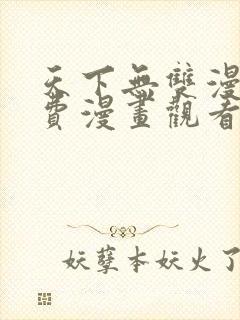 天下無雙漫
費漫畫觀看
妖孽本妖火了